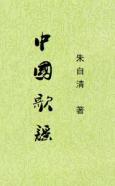 中國歌謠
朱自清 著